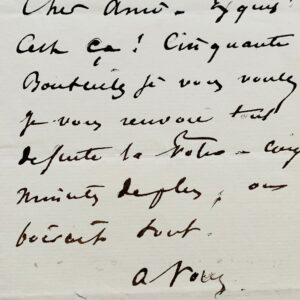 Cher Ami - Exquis
C'est ça ! Cinquante
Bouteilles si vous voulez
Je vous renvoie tout
de suite la Votre - cinq
minutes de plus, on
boirait tout.
A Vous